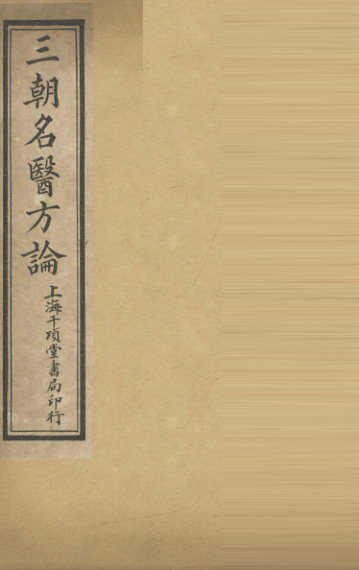 三朝名醫方論
上海千頃堂書局印行